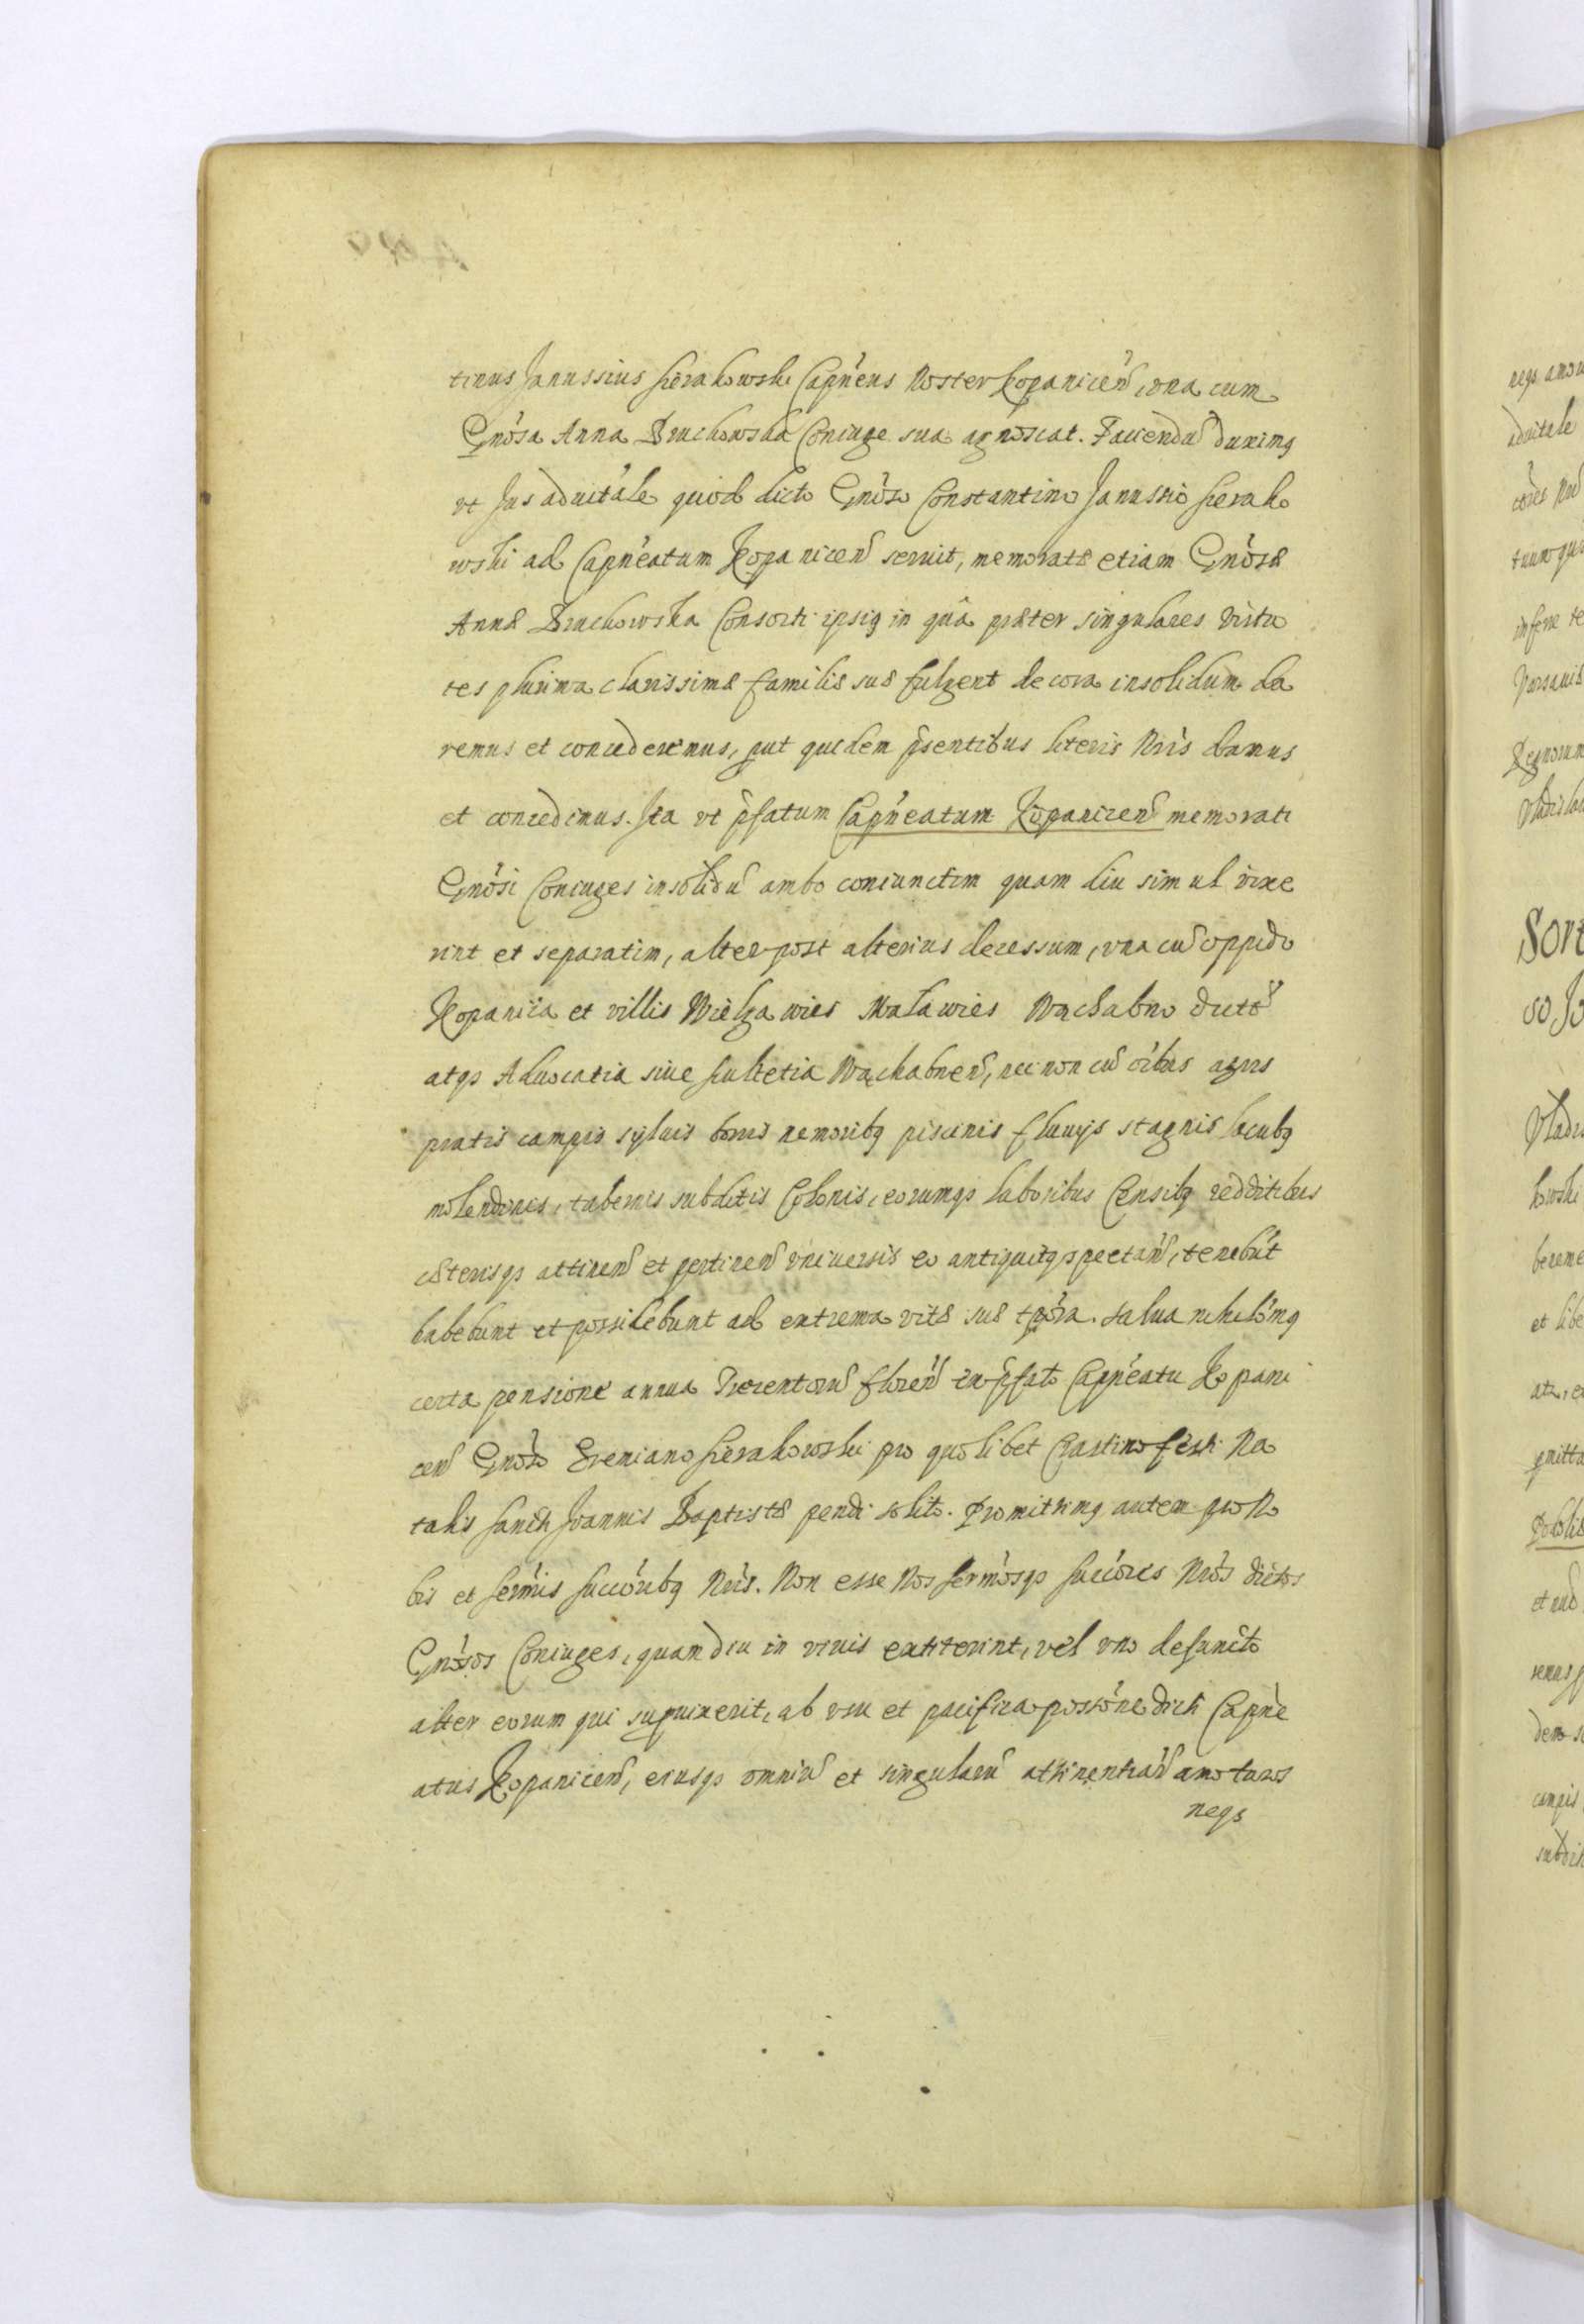 tinus Janussius Sierakowski Capn̄eus Noster Kopanicen̄, una cum
Gnōsa Anna Bruchowska Coniuge sua agnoscat. Faciendū duximꝯ
vt Jus aduitale quod dicto Gnōso Constantino Janussio Sierako
wski ad Capn̄eatum Kopanicen̄ seruit, memoratæ etiam Gnōsæ
Annæ Bruchowska Consorti ipsiꝯ in qua præter singulares virtu
tes plurima clarissimæ familiæ suæ fulgent decora insolidum da
remus et concederemus, ꝓut quidem p̄sentibus literis Nrīs damus
et concedimus. Ita vt p̄fatum Capn̄eatum Kopanicen̄ memorati
Gnōsi Coniuges insolidū ambo coniunctim quam diu simul vixe
rint et separatim, alter post alterius decessum, vna cū oppido
Kopanica et villis Wielgawies Malawies Wachabno
atqꝫ Aduocatia siue Scultetia Wachabnen̄, nec non cū oībus agris
pratis campis syluis boris nemoribꝯ piscinis fluuijs stagnis lacubꝯ
molendinis, tabernis subditis Colonis, eorumqꝫ laboribus Censibꝯ redditibus
cæterisqꝫ attinen̄ et pertinen̄ vniuersis eo antiquitꝯ spectan̄, tenebūt
habebunt et possidebunt ad extrema vitæ suæ tp̄ora. Salua nihilōmꝯ
certa pensione annua Trecentorū floren̄ ex p̄fato Capn̄eatu Kopani
cen̄ Gnōso Sierakowski pro quolibet Crastino festi Na
talis Sancti Joannis Baptistæ pendi solito. Promittimꝯ autem pro No
bis et Serm̄is Succōribꝯ Nrīs. Non esse Nos Serm̄osqꝫ Succōres Nrōs dictos
Gnōsos Coniuges, quamdiu in viuis extiterint, vel vno defuncto
alter eorum qui supuixerit, ab vsu et pacifica possōne dicti Capn̄e
atus Kopanicen̄, eiusqꝫ omniū et singularū attinentiar̄ amoturos
neqꝫ